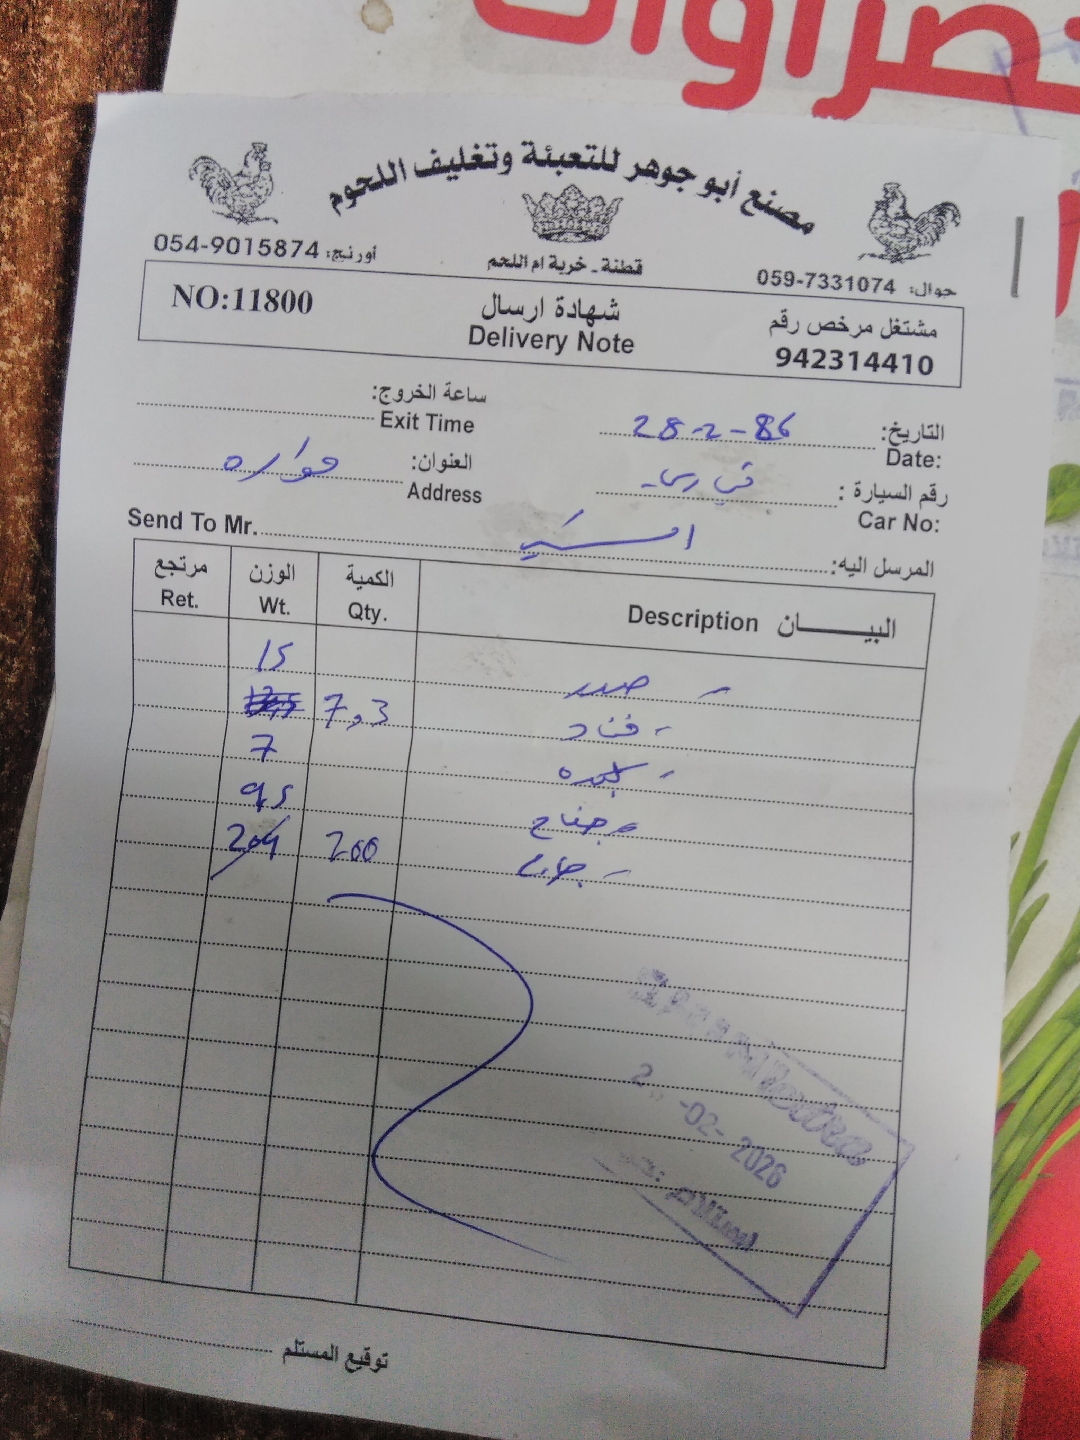 خضراوات
مصنع أبو جوهر للتعبئة وتغليف اللحوم
قطنة - خربة ام اللحم
أورنج: 054-9015874
جوال: 059-7331074
NO:11800
شهادة ارسال
Delivery Note
مشتغل مرخص رقم
942314410
ساعة الخروج:
Exit Time
التاريخ: 28-2-86
Date:
العنوان: حواره
Address
رقم السيارة :
Car No:
Send To Mr.
المرسل اليه:
مرتجع الوزن الكمية البيـــــان Description
Ret. Wt. Qty.
15 صدر
7,3
7
9,5 جناح
204 200
-02- 2026
توقيع المستلم